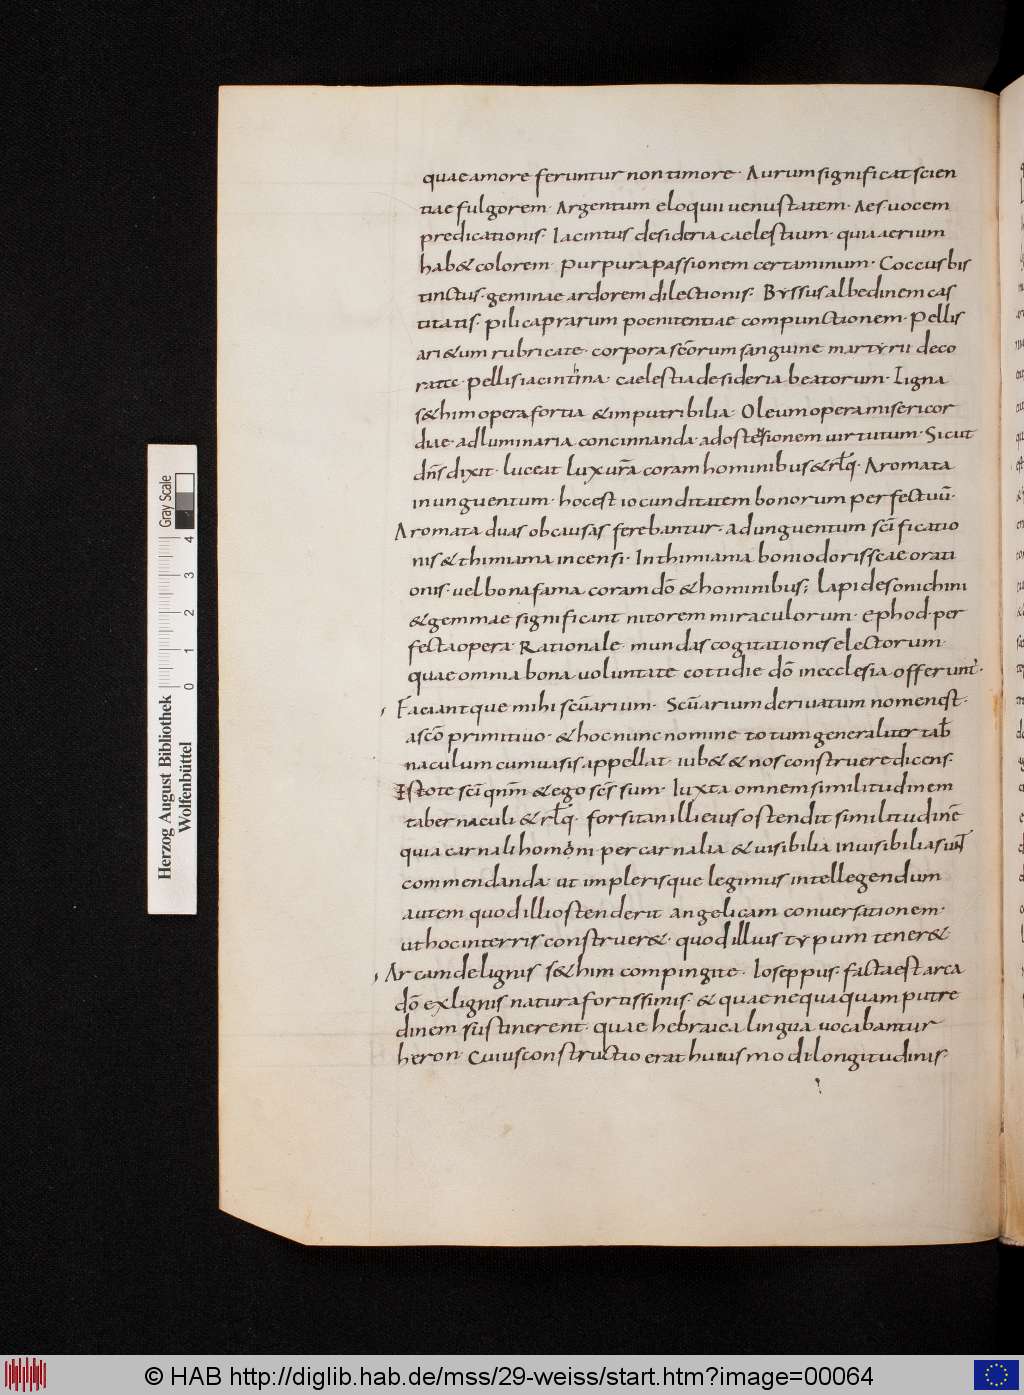 quae amore feruntur non timore· Aurum significat scien
tiae fulgorem· Argentum eloquii uenustatem· Aes uocem
predicationis· Iacintus desideria caelestium· quia aerium
hab& colorem· purpura passionem certaminum· Coccus bis
tinctus· geminae ardorem dilectionis· Byssus albedinem cas
titatis· pili caprarum poenitentiae compunctionem· Pellis
ari&um rubricate· corpora scōrum sanguine martyrii deco
rate· pellis iacintina· caelestia desideria beatorum· Ligna
s&him opera fortia &imputribilia· Oleum opera misericor
diae· ad luminaria concinnanda· ad ostensionem uirtutum· Sicut
dn̄s dixit· luceat lux ur̄a coram hominibus & rl̄q· Aromata
in unguentum· hoc est iocunditatem bonorum perfectuū·
Aromata duas ob causas ferebantur· ad unguentum sc̄ificatio
nis & thimiama incensi· In thimiama boni odoris sc̄ae orati
onis· uel bona fama coram dō & hominibus; lapides onichini
& gemmae significant nitorem miraculorum· Ephod· per
fecta opera· Rationale· mundas cogitationes electorum·
quae omnia bona uoluntate cottidie dō in ecclesia offerunt·
Faciantque mihi sc̄uarium· Sc̄uarium deriuatum nomen est·
a sc̄o primitiuo· & hoc nunc nomine totum generaliter tab
naculum cum uasis appellat· iub& & nos construere dicens·
Estote sc̄i qnm̄ & ego sc̄s sum· Iuxta omnem similitudinem
tabernaculi & rl̄q· forsitan illi eius ostendit similitudinē
quia carnali homini per carnalia & uisibilia inuisibilia sunt
commendanda· ut impleris que legimus intellegendum
autem quod illi ostenderit angelicam conuersationem·
ut hoc in terris construer&· quod illius typum tener&
Arcam de lignis s&him compingite· Ioseppus· facta est arca
dō ex lignis natura fortissimis· & quae nequaquam putre
dinem sustinerent· quae hebraica lingua uocabantur
heron· Cuius constructio erat huiusmodi longitudinis·
Herzog August Bibliothek
Wolfenbüttel
0 1 2 3 4
Gray Scale
© HAB http://diglib.hab.de/mss/29-weiss/start.htm?image=00064